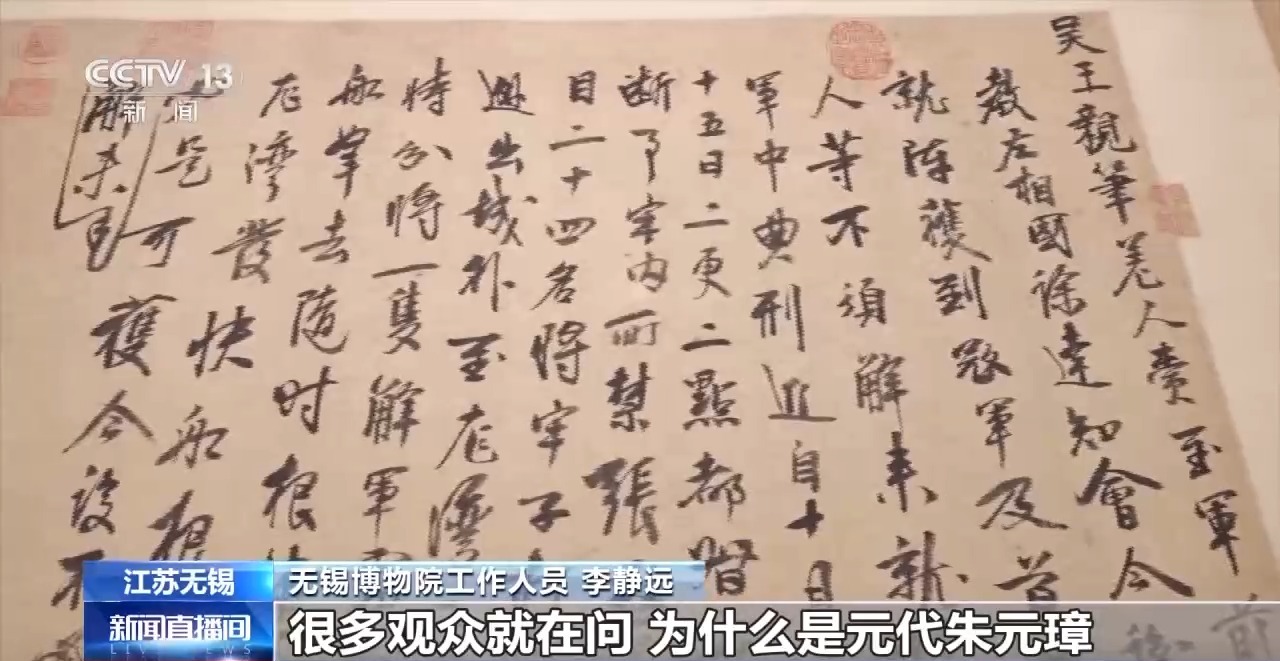 CCTV 13
新闻
吴王親筆差人賫至軍前
教左相國徐達知會今後
就陣獲到寇軍及首
人等不須解来新
軍中典刑進自十月
十五日二更二點都督
断了牢内所禁張
目二十四名將牢子
出城外至龙灣
特分將一隻解軍
船去隨时根
龙灣發快船根
是可獲今後不
解来
江苏无锡
无锡博物院工作人员 李静远
新闻直播间
LIVE NEWS
很多观众就在问 为什么是元代朱元璋